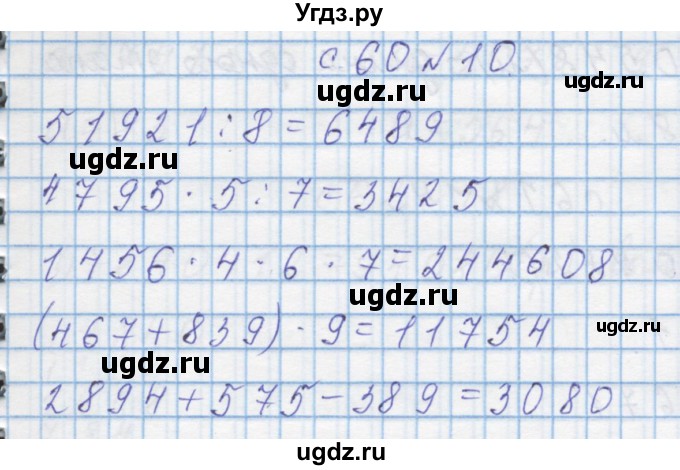 Угдз.ру
с. 60 № 10.
ugdz.ru
51921 : 8 = 6489
ugdz.ru
ugdz.ru
4795 · 5 : 7 = 3425
ugdz.ru
1456 · 4 · 6 · 7 = 244608
ugdz.ru
ugdz.ru
(467 + 839) · 9 = 11754
ugdz.ru
2894 + 575 - 389 = 3080
ugdz.ru